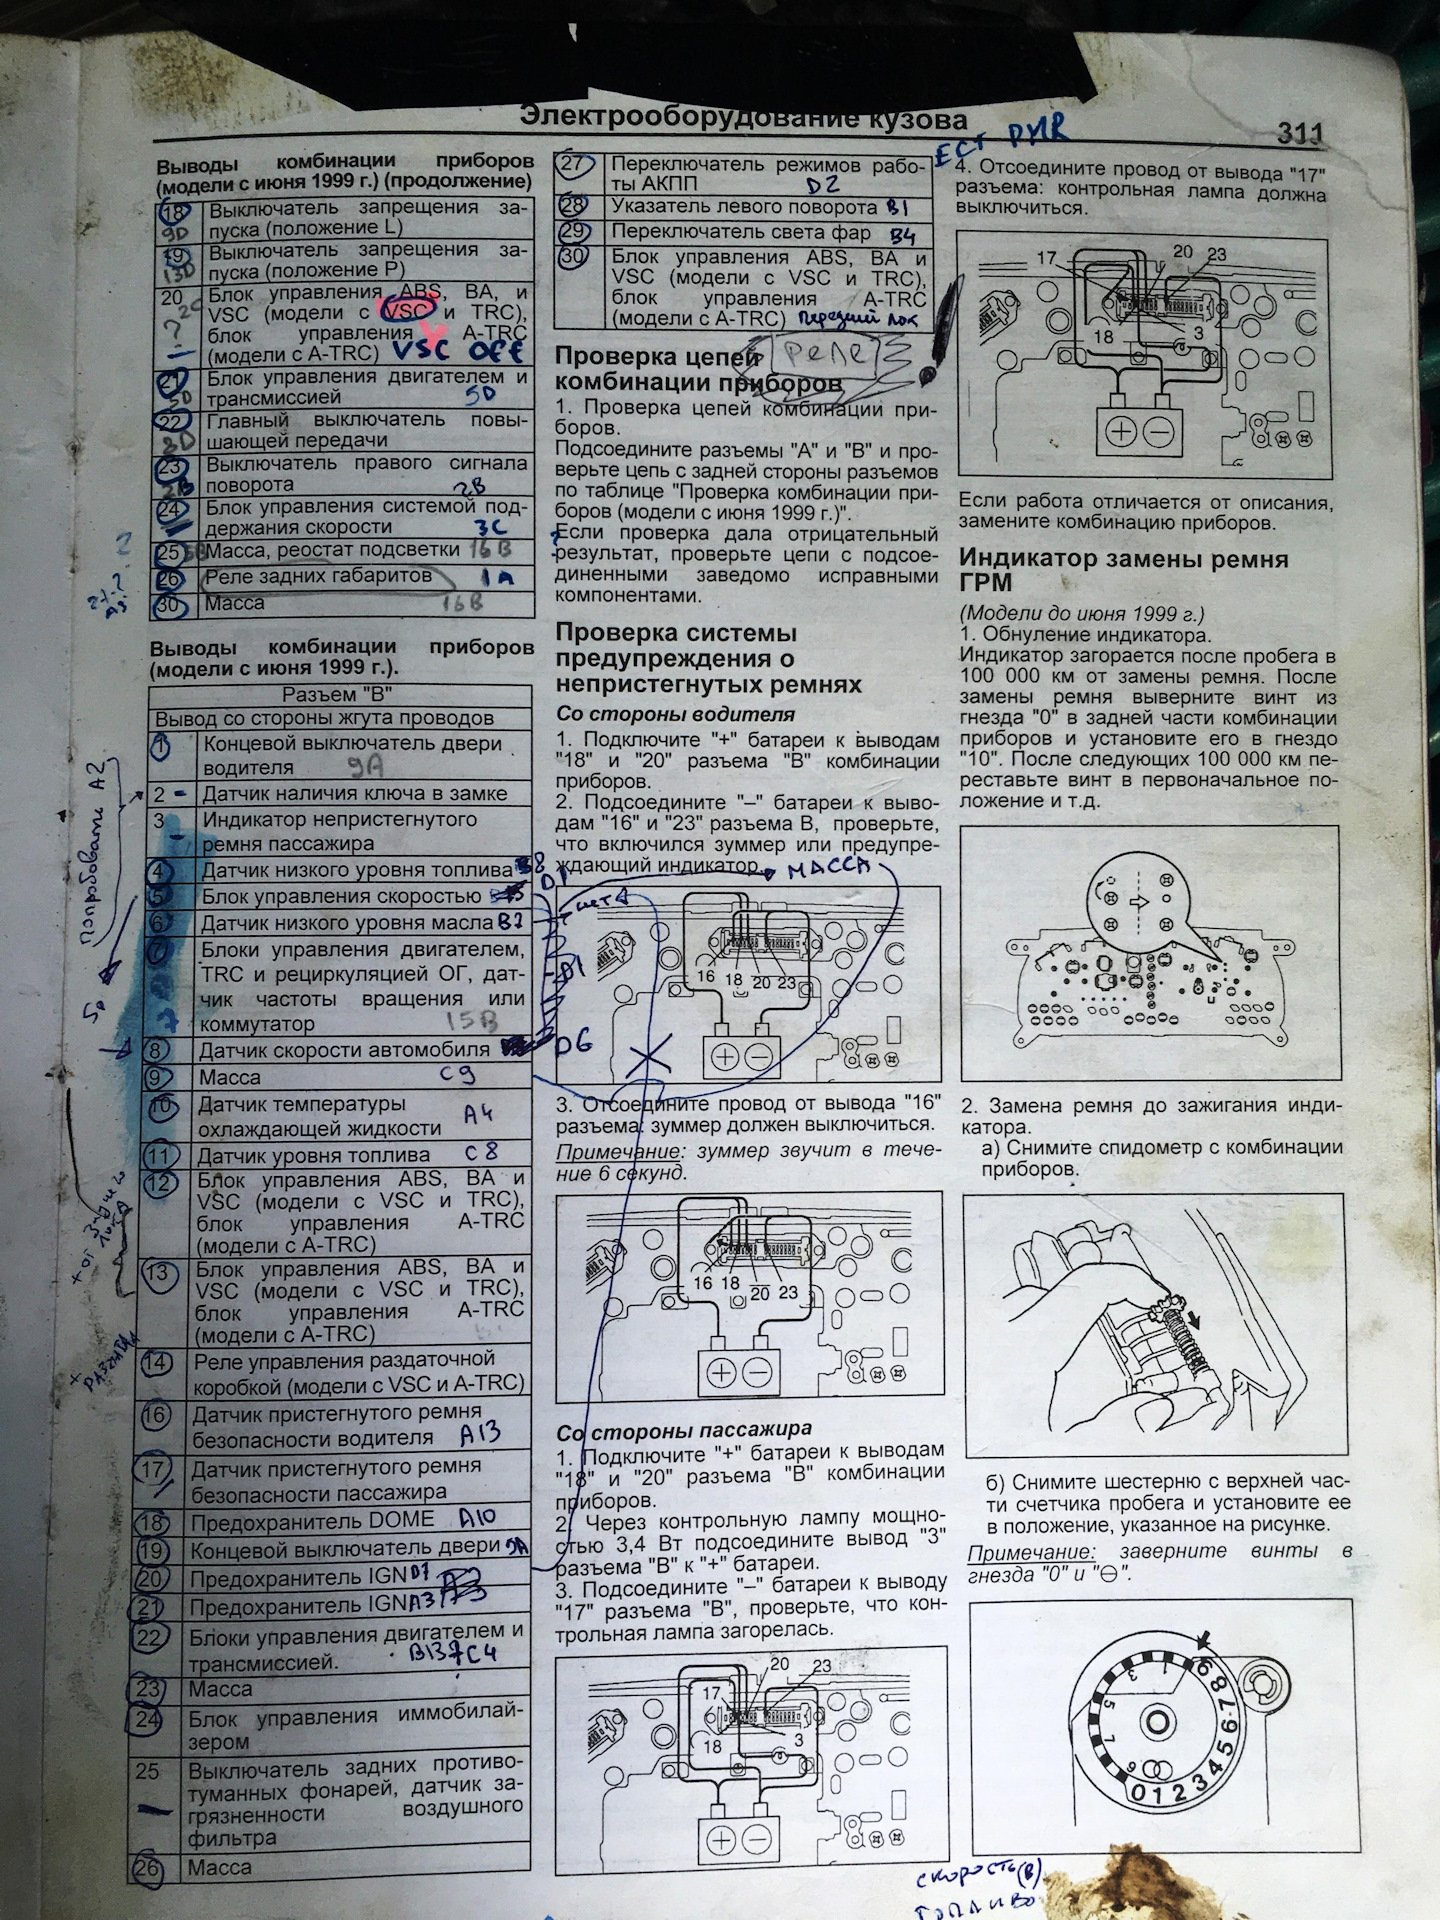 Электрооборудование кузова
311
ЕСТ
Выводы комбинации приборов
(модели с июня 1999 г.) (продолжение)
18 Выключатель запрещения за-
9D пуска (положение L)
19 Выключатель запрещения за-
13D пуска (положение P)
20 Блок управления ABS, BA, и
VSC (модели с VSC и TRC),
? блок управления A-TRC
(модели с A-TRC) VSC OFF
21 Блок управления двигателем и
трансмиссией 5D
22 Главный выключатель повы-
шающей передачи
23 Выключатель правого сигнала
2B поворота 2B
24 Блок управления системой под-
держания скорости 3C
25 Масса, реостат подсветки 16B
26 Реле задних габаритов 1A
30 Масса 16B
Выводы комбинации приборов
(модели с июня 1999 г.).
Разъем "B"
Вывод со стороны жгута проводов
1 Концевой выключатель двери
водителя 9A
2 - Датчик наличия ключа в замке
3 Индикатор непристегнутого
- ремня пассажира
4 Датчик низкого уровня топлива B8
5 Блок управления скоростью D1
6 Датчик низкого уровня масла B7
7 Блоки управления двигателем,
TRC и рециркуляцией ОГ, дат-
чик частоты вращения или
коммутатор 15B
8 Датчик скорости автомобиля D6
9 Масса C9
10 Датчик температуры
охлаждающей жидкости A4
11 Датчик уровня топлива C8
12 Блок управления ABS, BA и
VSC (модели с VSC и TRC),
блок управления A-TRC
(модели с A-TRC)
13 Блок управления ABS, BA и
VSC (модели с VSC и TRC),
блок управления A-TRC
(модели с A-TRC)
14 Реле управления раздаточной
коробкой (модели с VSC и A-TRC)
16 Датчик пристегнутого ремня
безопасности водителя A13
17 Датчик пристегнутого ремня
безопасности пассажира
18 Предохранитель DOME A10
19 Концевой выключатель двери 9A
20 Предохранитель IGN D7
21 Предохранитель IGN A3
22 Блоки управления двигателем и
трансмиссией. B13 7C4
23 Масса
24 Блок управления иммобилай-
зером
25 Выключатель задних противо-
туманных фонарей, датчик за-
грязненности воздушного
фильтра
26 Масса
Попробовать A2
27 Переключатель режимов рабо-
ты АКПП D2
28 Указатель левого поворота B1
29 Переключатель света фар B4
30 Блок управления ABS, BA и
VSC (модели с VSC и TRC),
блок управления A-TRC
(модели с A-TRC) передний лок
реле
Проверка цепей
комбинации приборов
1. Проверка цепей комбинации при-
боров.
Подсоедините разъемы "А" и "В" и про-
верьте цепь с задней стороны разъемов
по таблице "Проверка комбинации при-
боров (модели с июня 1999 г.)".
Если проверка дала отрицательный
результат, проверьте цепи с подсое-
диненными заведомо исправными
компонентами.
Проверка системы
предупреждения о
непристегнутых ремнях
Со стороны водителя
1. Подключите "+" батареи к выводам
"18" и "20" разъема "В" комбинации
приборов.
2. Подсоедините "–" батареи к выво-
дам "16" и "23" разъема В, проверьте,
что включился зуммер или предупре-
ждающий индикатор.
МАССА
16 18 20 23
3. Отсоедините провод от вывода "16"
разъема: зуммер должен выключиться.
Примечание: зуммер звучит в тече-
ние 6 секунд.
16 18 20 23
Со стороны пассажира
1. Подключите "+" батареи к выводам
"18" и "20" разъема "В" комбинации
приборов.
2. Через контрольную лампу мощно-
стью 3,4 Вт подсоедините вывод "3"
разъема "В" к "+" батареи.
3. Подсоедините "–" батареи к выводу
"17" разъема "В", проверьте, что кон-
трольная лампа загорелась.
20 23
17
18 3
4. Отсоедините провод от вывода "17"
разъема: контрольная лампа должна
выключиться.
17 20 23
18 3
Если работа отличается от описания,
замените комбинацию приборов.
Индикатор замены ремня
ГРМ
(Модели до июня 1999 г.)
1. Обнуление индикатора.
Индикатор загорается после пробега в
100 000 км от замены ремня. После
замены ремня выверните винт из
гнезда "0" в задней части комбинации
приборов и установите его в гнездо
"10". После следующих 100 000 км пе-
реставьте винт в первоначальное по-
ложение и т.д.
2. Замена ремня до зажигания инди-
катора.
а) Снимите спидометр с комбинации
приборов.
б) Снимите шестерню с верхней час-
ти счетчика пробега и установите ее
в положение, указанное на рисунке.
Примечание: заверните винты в
гнезда "0" и "⊖".
0 1 2 3 4 5 6 7 8 9
скорость (В)
топливо